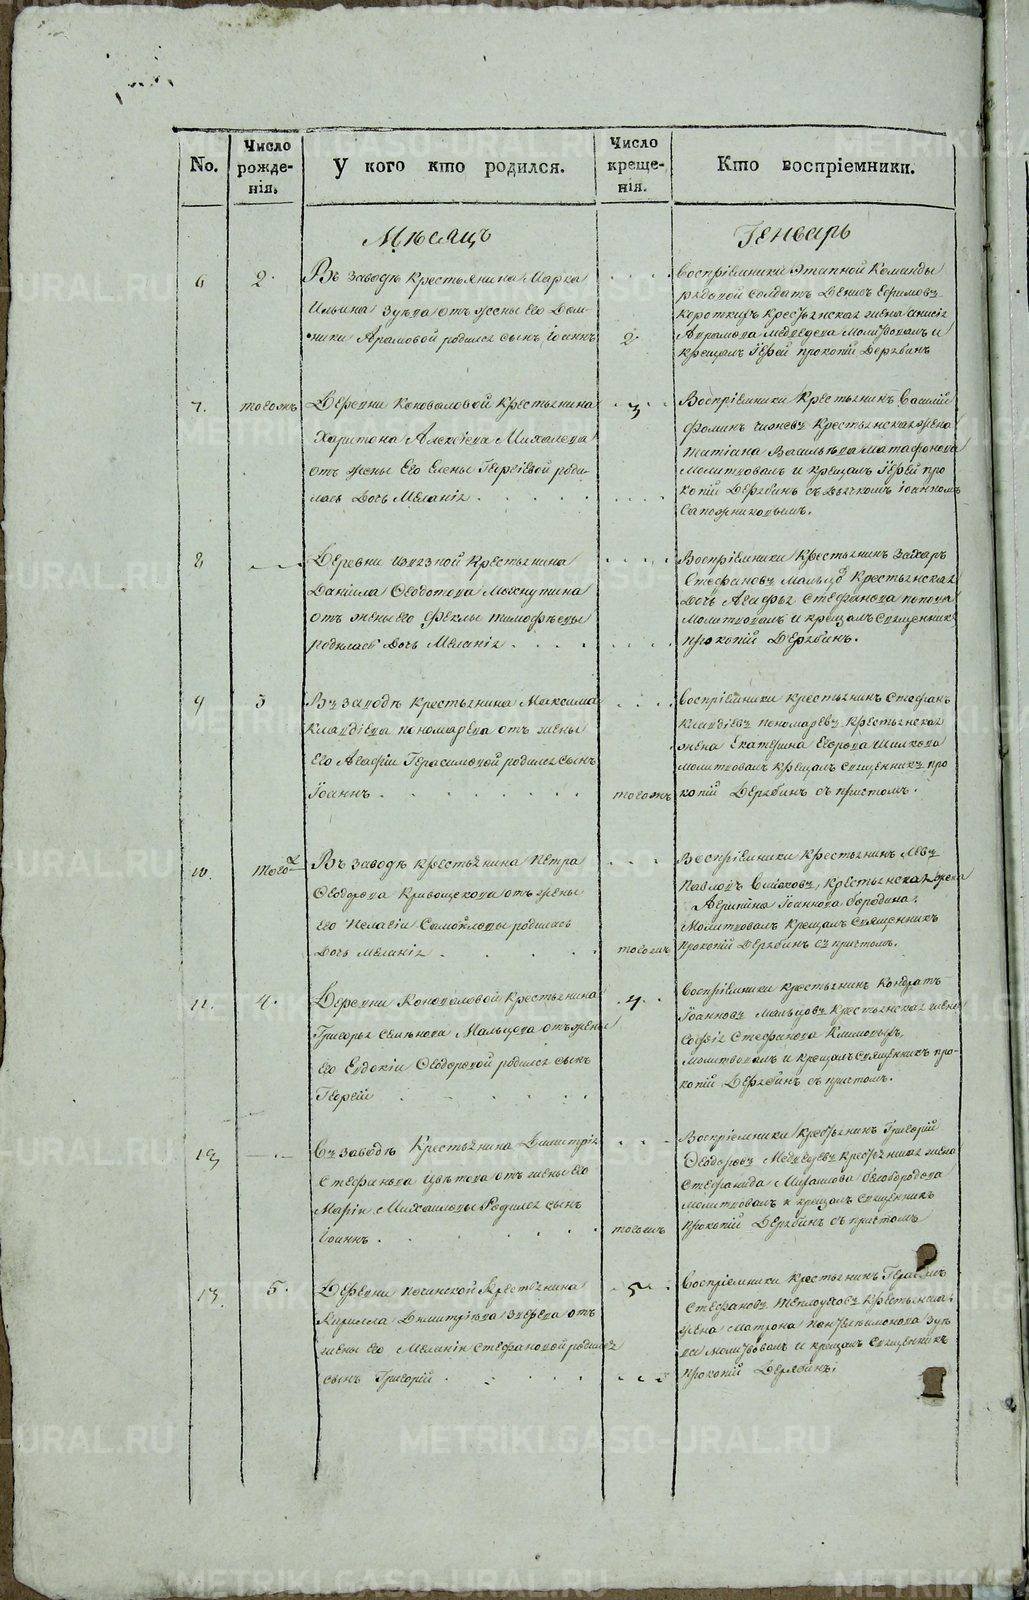 METRIKI.GASO-URAL.RU
No.
Число рожде-
нія.
У кого кто родился.
Число креще-
нія.
Кто воспріемники.
Мѣсяцъ Генварь
6 2.
Въ заводѣ Крестьянина Марка
Ильина Зуева отъ жены Его Дом-
ники Арамовой родился сынъ Іоаннъ
2
Воспріемники Этапной Команды
рядовой солдатъ Денисъ Ефимовъ
Коротких Крестьянская жена Анисія
Аврамова Медведева Молитвовалъ и
крещалъ Іерей прокопій Дерябинъ
7. тогожъ
Деревни Коноваловой Крестьянина
Харитона Алексіева Михалева
отъ жены Его Елены Георгіевой роди-
лась Дочь Меланія
3
Воспріемники Крестьянинъ Василій
Фоминъ Крестьянская жена
Татіана Васильева Матафонова
Молитвовалъ и крещалъ Іерей про
копій Дерябинъ съ дьячкомъ Іоанномъ
Сапожниковымъ.
8
Деревни Крестьянина
Даніила Ѳеодотова Махнутина
отъ жены его Феклы тимофѣевы
родилась Дочь Меланія
Воспріемники Крестьянинъ Захаръ
Стефановъ Мальцовъ Крестьянская
Дочь Агафья Стефанова попова
Молитвовалъ и крещалъ Священникъ
прокопій Дерябинъ.
9 3
Въ заводѣ Крестьянина Максима
Клавдіева пономарева отъ жены
Его Агафіи Герасимовой родился сынъ
Іоаннъ
тогожъ
Воспріемники крестьянинъ Стефанъ
Клавдіевъ пономаревъ, Крестьянская
жена Екатерина Егорова Шилкова
молитвовалъ Крещалъ Священникъ про
копій Дерябинъ съ притомъ.
10. Тогож
Въ заводѣ крестьянина Петра
Ѳеодорова Кривощекова отъ жены
Его Пелагіи Самойловы родилась
Дочь Меланія
тогожъ
Воспріемники Крестьянинъ Левъ
Павловъ Крестьянская жена
Іоаннова бородина,
Молитвовалъ Крещалъ Священникъ
прокопій Дерябинъ съ притомъ.
11. 4.
Деревни Коноваловой Крестьянина
Григорья Семенова Мальцова отъ жены
Его Евдокіи Ѳеодоровой родился сынъ
Георгій
4
Воспріемники крестьянинъ Кондратъ
Іоанновъ Мальцовъ Крестьянская жена
Софья Стефанова
молитвовалъ и крещалъ Священникъ про-
копій Дерябинъ съ притомъ.
12
Въ заводѣ Крестьянина Димитрія
Стефанова Цвѣтова отъ жены Его
Маріи Михаиловы Родился сынъ
Іоаннъ.
тогожъ
Воспріемники Крестьянинъ Григорій
Ѳеодоровъ Медведевъ крестьянская жена
Стефанида Михаилова белобородова
молитвовалъ и крещалъ Священникъ
прокопій Дерябинъ съ притомъ
13. 5.
Деревни Крестьянина
Кирилла Димитріева Зверева отъ
жены Его Меланіи Стефановой родился
сынъ Григорій
5
Воспріемники крестьянинъ Герасимъ
Стефановъ Теплоуховъ Крестьянская
жена Матрона Пантелеимонова Зуе
ва Молитвовалъ и крещалъ Священникъ
прокопій Дерябинъ.